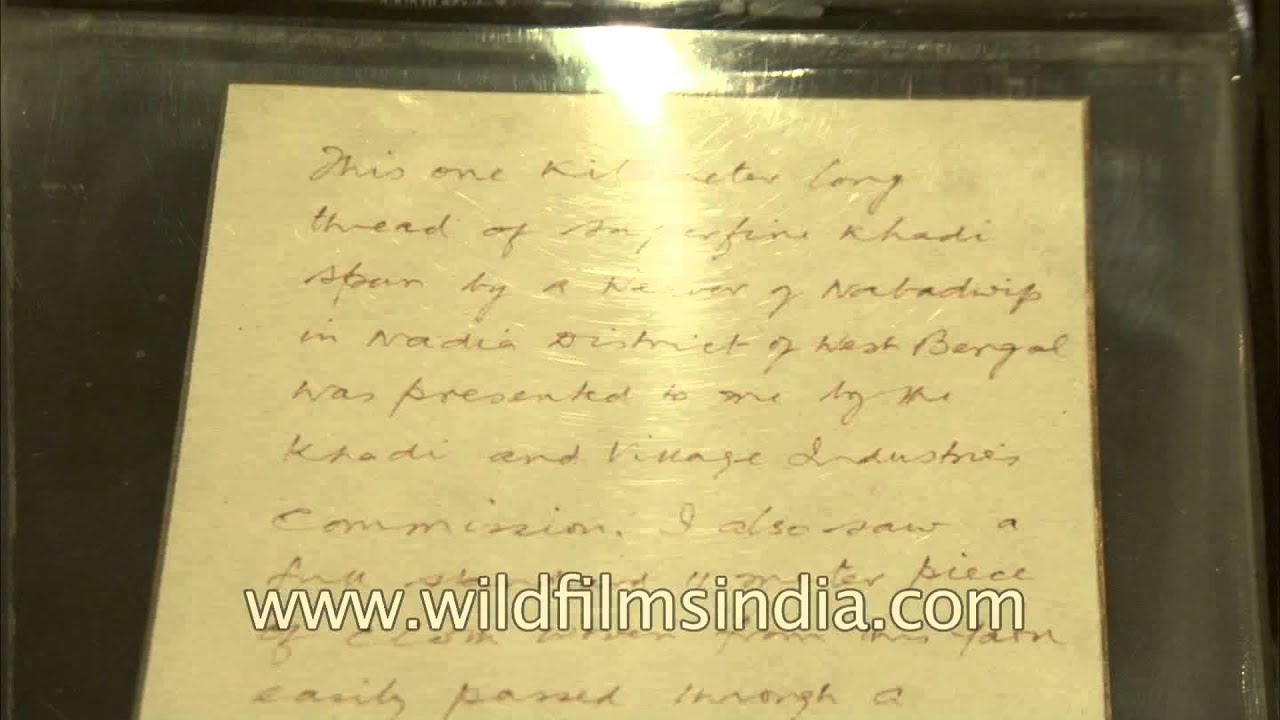 This one Kilometer long
thread of superfine Khadi
spun by a Weaver of Nabadwip
in Nadia District of West Bengal
was presented to me by the
Khadi and Village Industries
Commission. I also saw a
full standard 11 meter piece
www.wildfilmsindia.com
of cloth woven from this yarn
easily passed through a